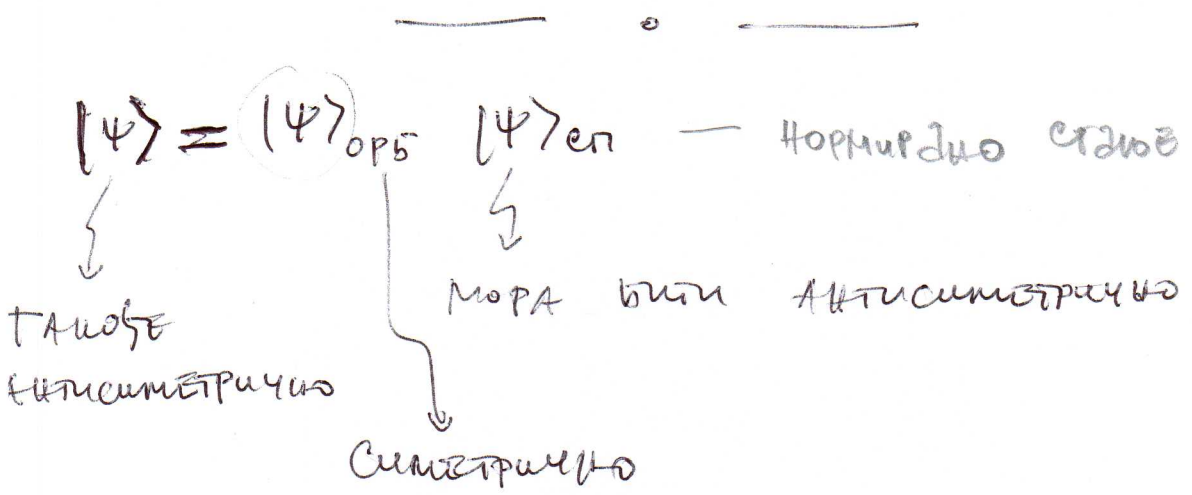 |Ψ⟩ = |Ψ⟩ОРБ |Ψ⟩СП — НОРМИРАНО СТАЊЕ
МОРА БИТИ АНТИСИМЕТРИЧНО
ТАКОЂЕ
АНТИСИМЕТРИЧНО
СИМЕТРИЧНО